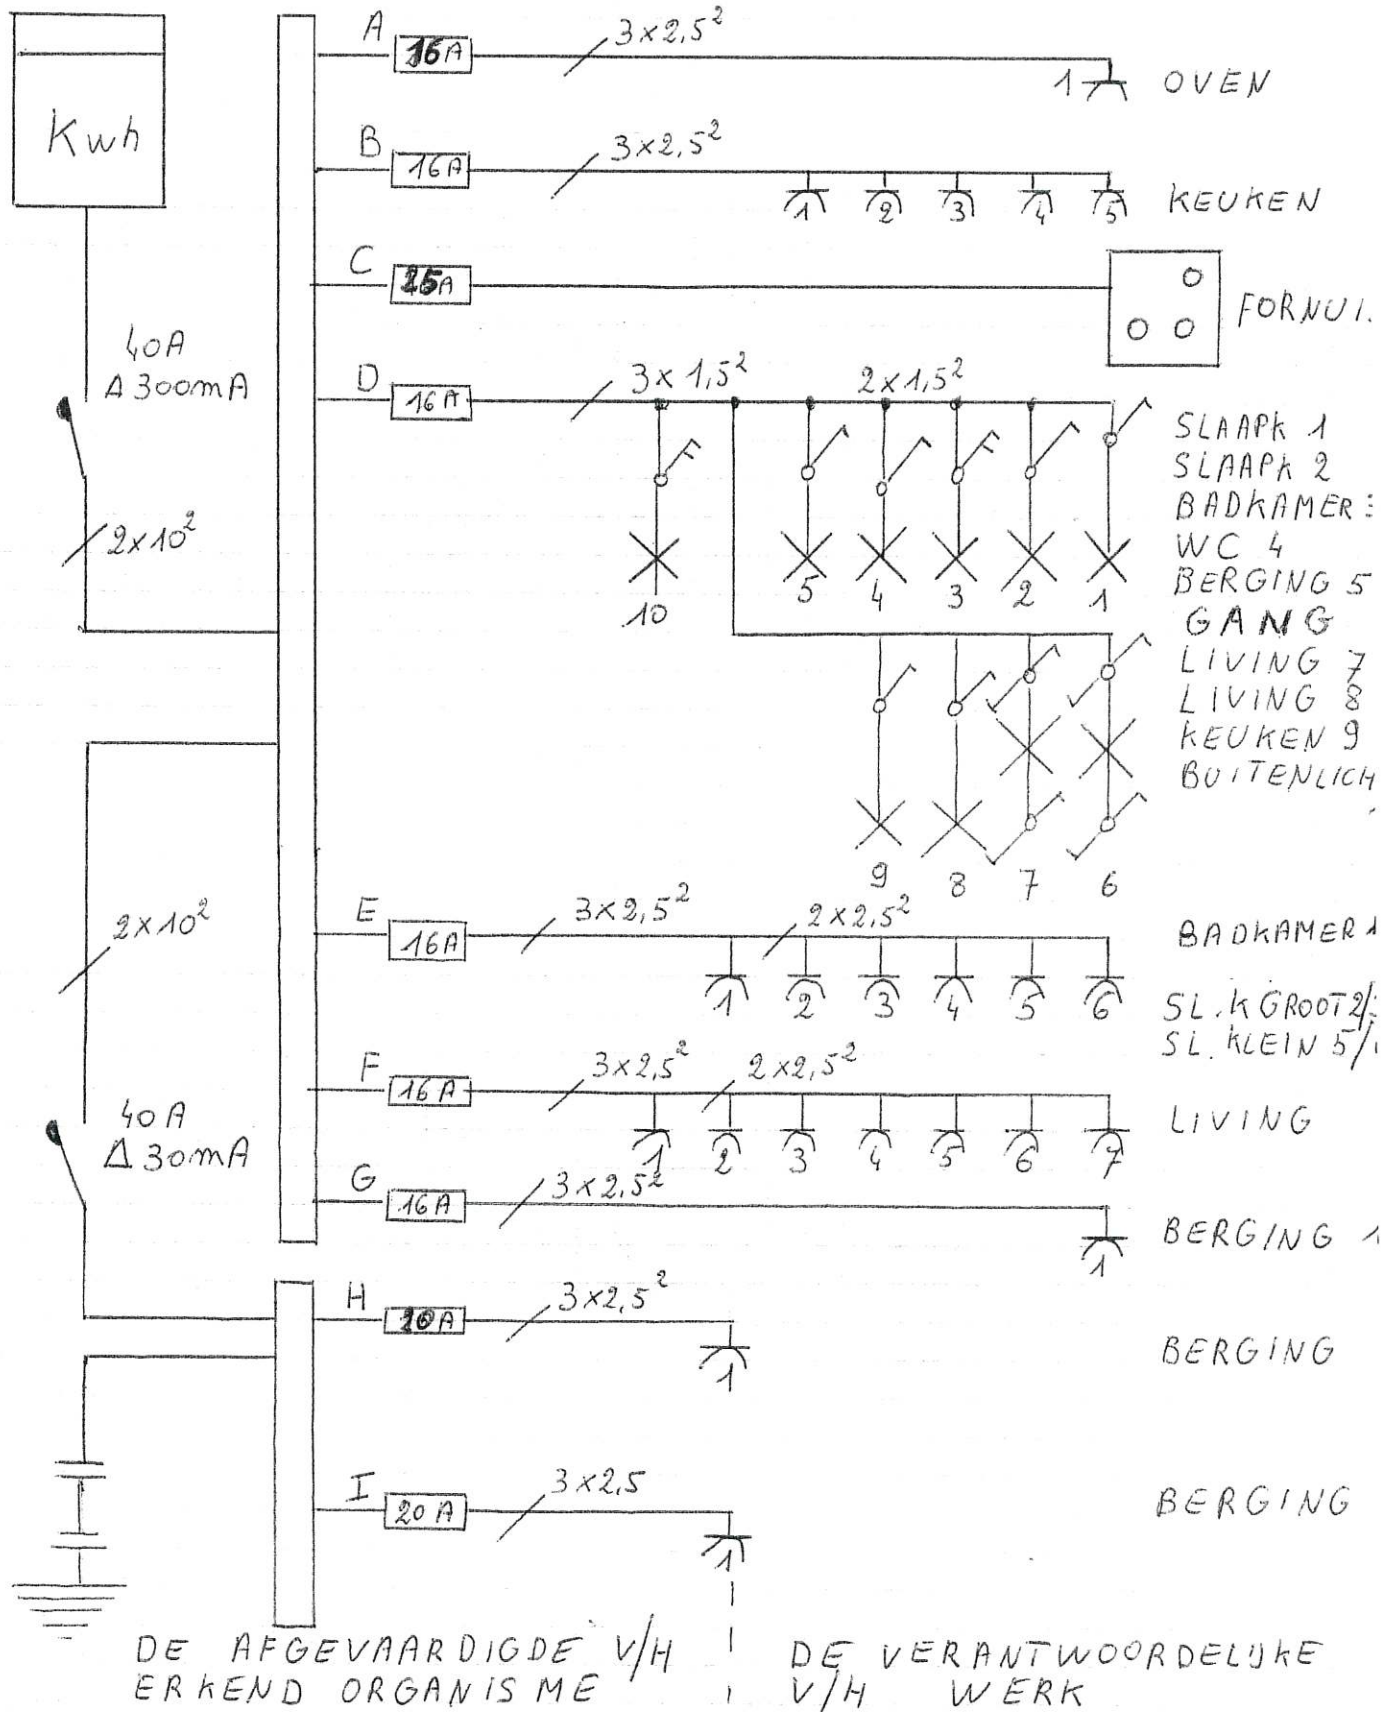 Kwh
40A
Δ300mA
2×10²
2×10²
40A
Δ30mA
A 16A 3×2,5²
1 OVEN
B 16A 3×2,5²
1 2 3 4 5 KEUKEN
C 25A
FORNUI.
D 16A 3×1,5² 2×1,5²
10 5 4 3 2 1
SLAAPK 1
SLAAPK 2
BADKAMER
WC 4
BERGING 5
GANG
LIVING 7
LIVING 8
KEUKEN 9
BUITENLICH
9 8 7 6
E 16A 3×2,5² 2×2,5²
1 2 3 4 5 6
BADKAMER 1
SL.K GROOT 2/
SL. KLEIN 5/
F 16A 3×2,5² 2×2,5²
1 2 3 4 5 6 7
LIVING
G 16A 3×2,5²
1
BERGING 1
H 20A 3×2,5²
1
BERGING
I 20A 3×2,5
1
BERGING
DE AFGEVAARDIGDE V/H
ERKEND ORGANISME
DE VERANTWOORDELIJKE
V/H WERK